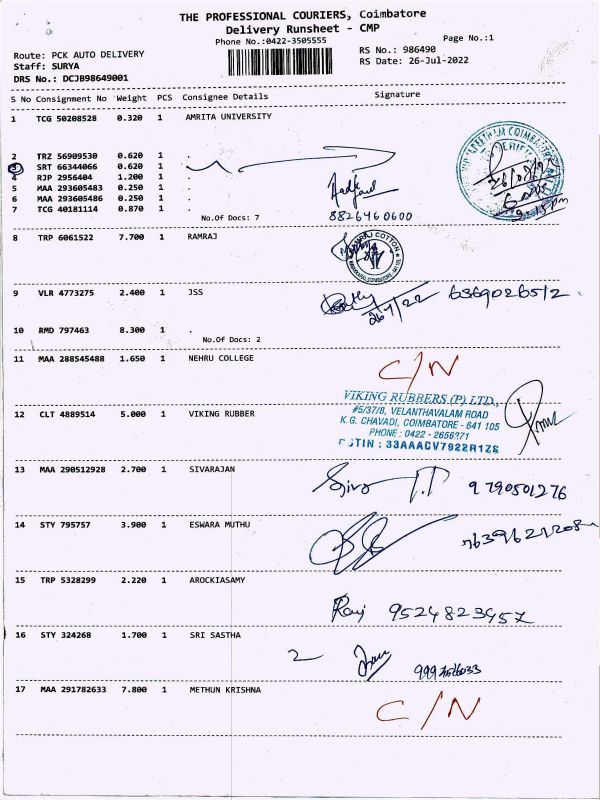 THE PROFESSIONAL COURIERS, Coimbatore
Delivery Runsheet - CMP
Phone No.:0422-3505555
Page No.:1
Route: PCK AUTO DELIVERY
RS No.: 986490
Staff: SURYA
RS Date: 26-Jul-2022
DRS No.: DCJB98649001
S No Consignment No Weight PCS Consignee Details Signature
1 TCG 50208528 0.320 1 AMRITA UNIVERSITY
2 TRZ 56909530 0.620 1 .
3 SRT 66344066 0.620 1 .
4 RJP 2956404 1.200 1 .
5 MAA 293605483 0.250 1 .
6 MAA 293605486 0.250 1 .
7 TCG 40181114 0.870 1 .
No.Of Docs: 7
8826460600
8 TRP 6061522 7.700 1 RAMRAJ
COTTON
9 VLR 4773275 2.400 1 JSS
26/7/22 6369026512
10 RMD 797463 8.300 1 .
No.Of Docs: 2
11 MAA 288545488 1.650 1 NEHRU COLLEGE
C/N
VIKING RUBBERS (P) LTD.,
#5/37/8, VELANTHAVALAM ROAD
12 CLT 4889514 5.000 1 VIKING RUBBER
K.G. CHAVADI, COIMBATORE - 641 105
PHONE : 0422 - 2656271
33AAACV7922R1ZS
13 MAA 290512928 2.700 1 SIVARAJAN
9790501276
14 STY 795757 3.900 1 ESWARA MUTHU
15 TRP 5328299 2.220 1 AROCKIASAMY
Raj 9524823457
16 STY 324268 1.700 1 SRI SASTHA
17 MAA 291782633 7.800 1 METHUN KRISHNA
C/N